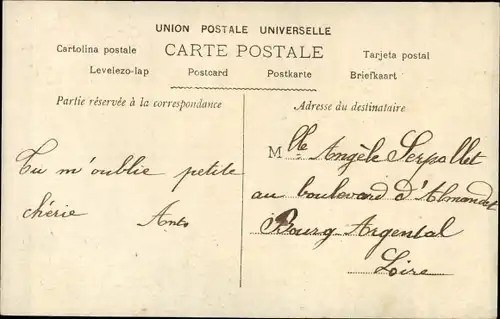 UNION POSTALE UNIVERSELLE
CARTE POSTALE
Cartolina postale
Tarjeta postal
Levelezo-lap
Postcard
Postkarte
Briefkaart
Partie réservée à la correspondance
Tu m'oublie petite
chérie Anto
Adresse du destinataire
Mlle Angèle Serpollet
au boulevard d'Almandet
Bourg Argental
Loire